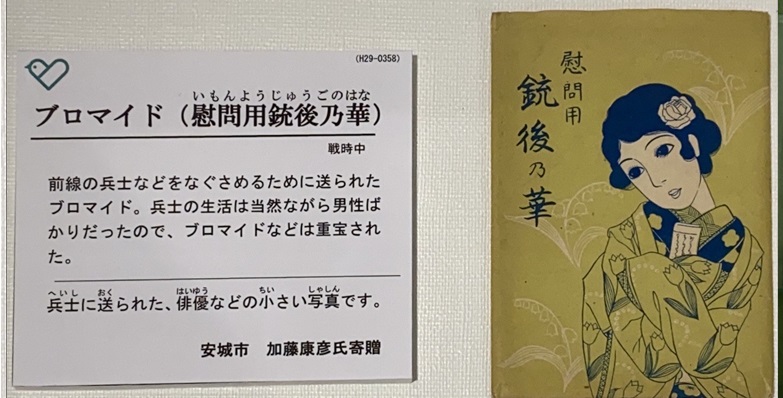 (H29-0358)
いもんようじゅうごのはな
ブロマイド（慰問用銃後乃華）
戦時中
前線の兵士などをなぐさめるために送られた
ブロマイド。兵士の生活は当然ながら男性ば
かりだったので、ブロマイドなどは重宝され
た。
へいし おく はいゆう ちい しゃしん
兵士に送られた、俳優などの小さい写真です。
安城市 加藤康彦氏寄贈
慰問用
銃後乃華